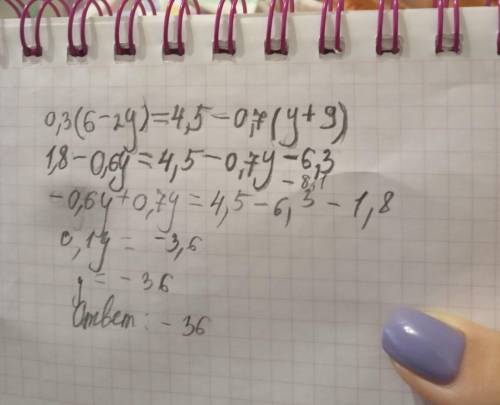 0,3(6-2y)=4,5-0,7(y+9)
1,8-0,6y=4,5-0,7y-6,3
-8,1
-0,6y+0,7y=4,5-6,3-1,8
0,1y=-3,6
y=-36
Ответ: -36